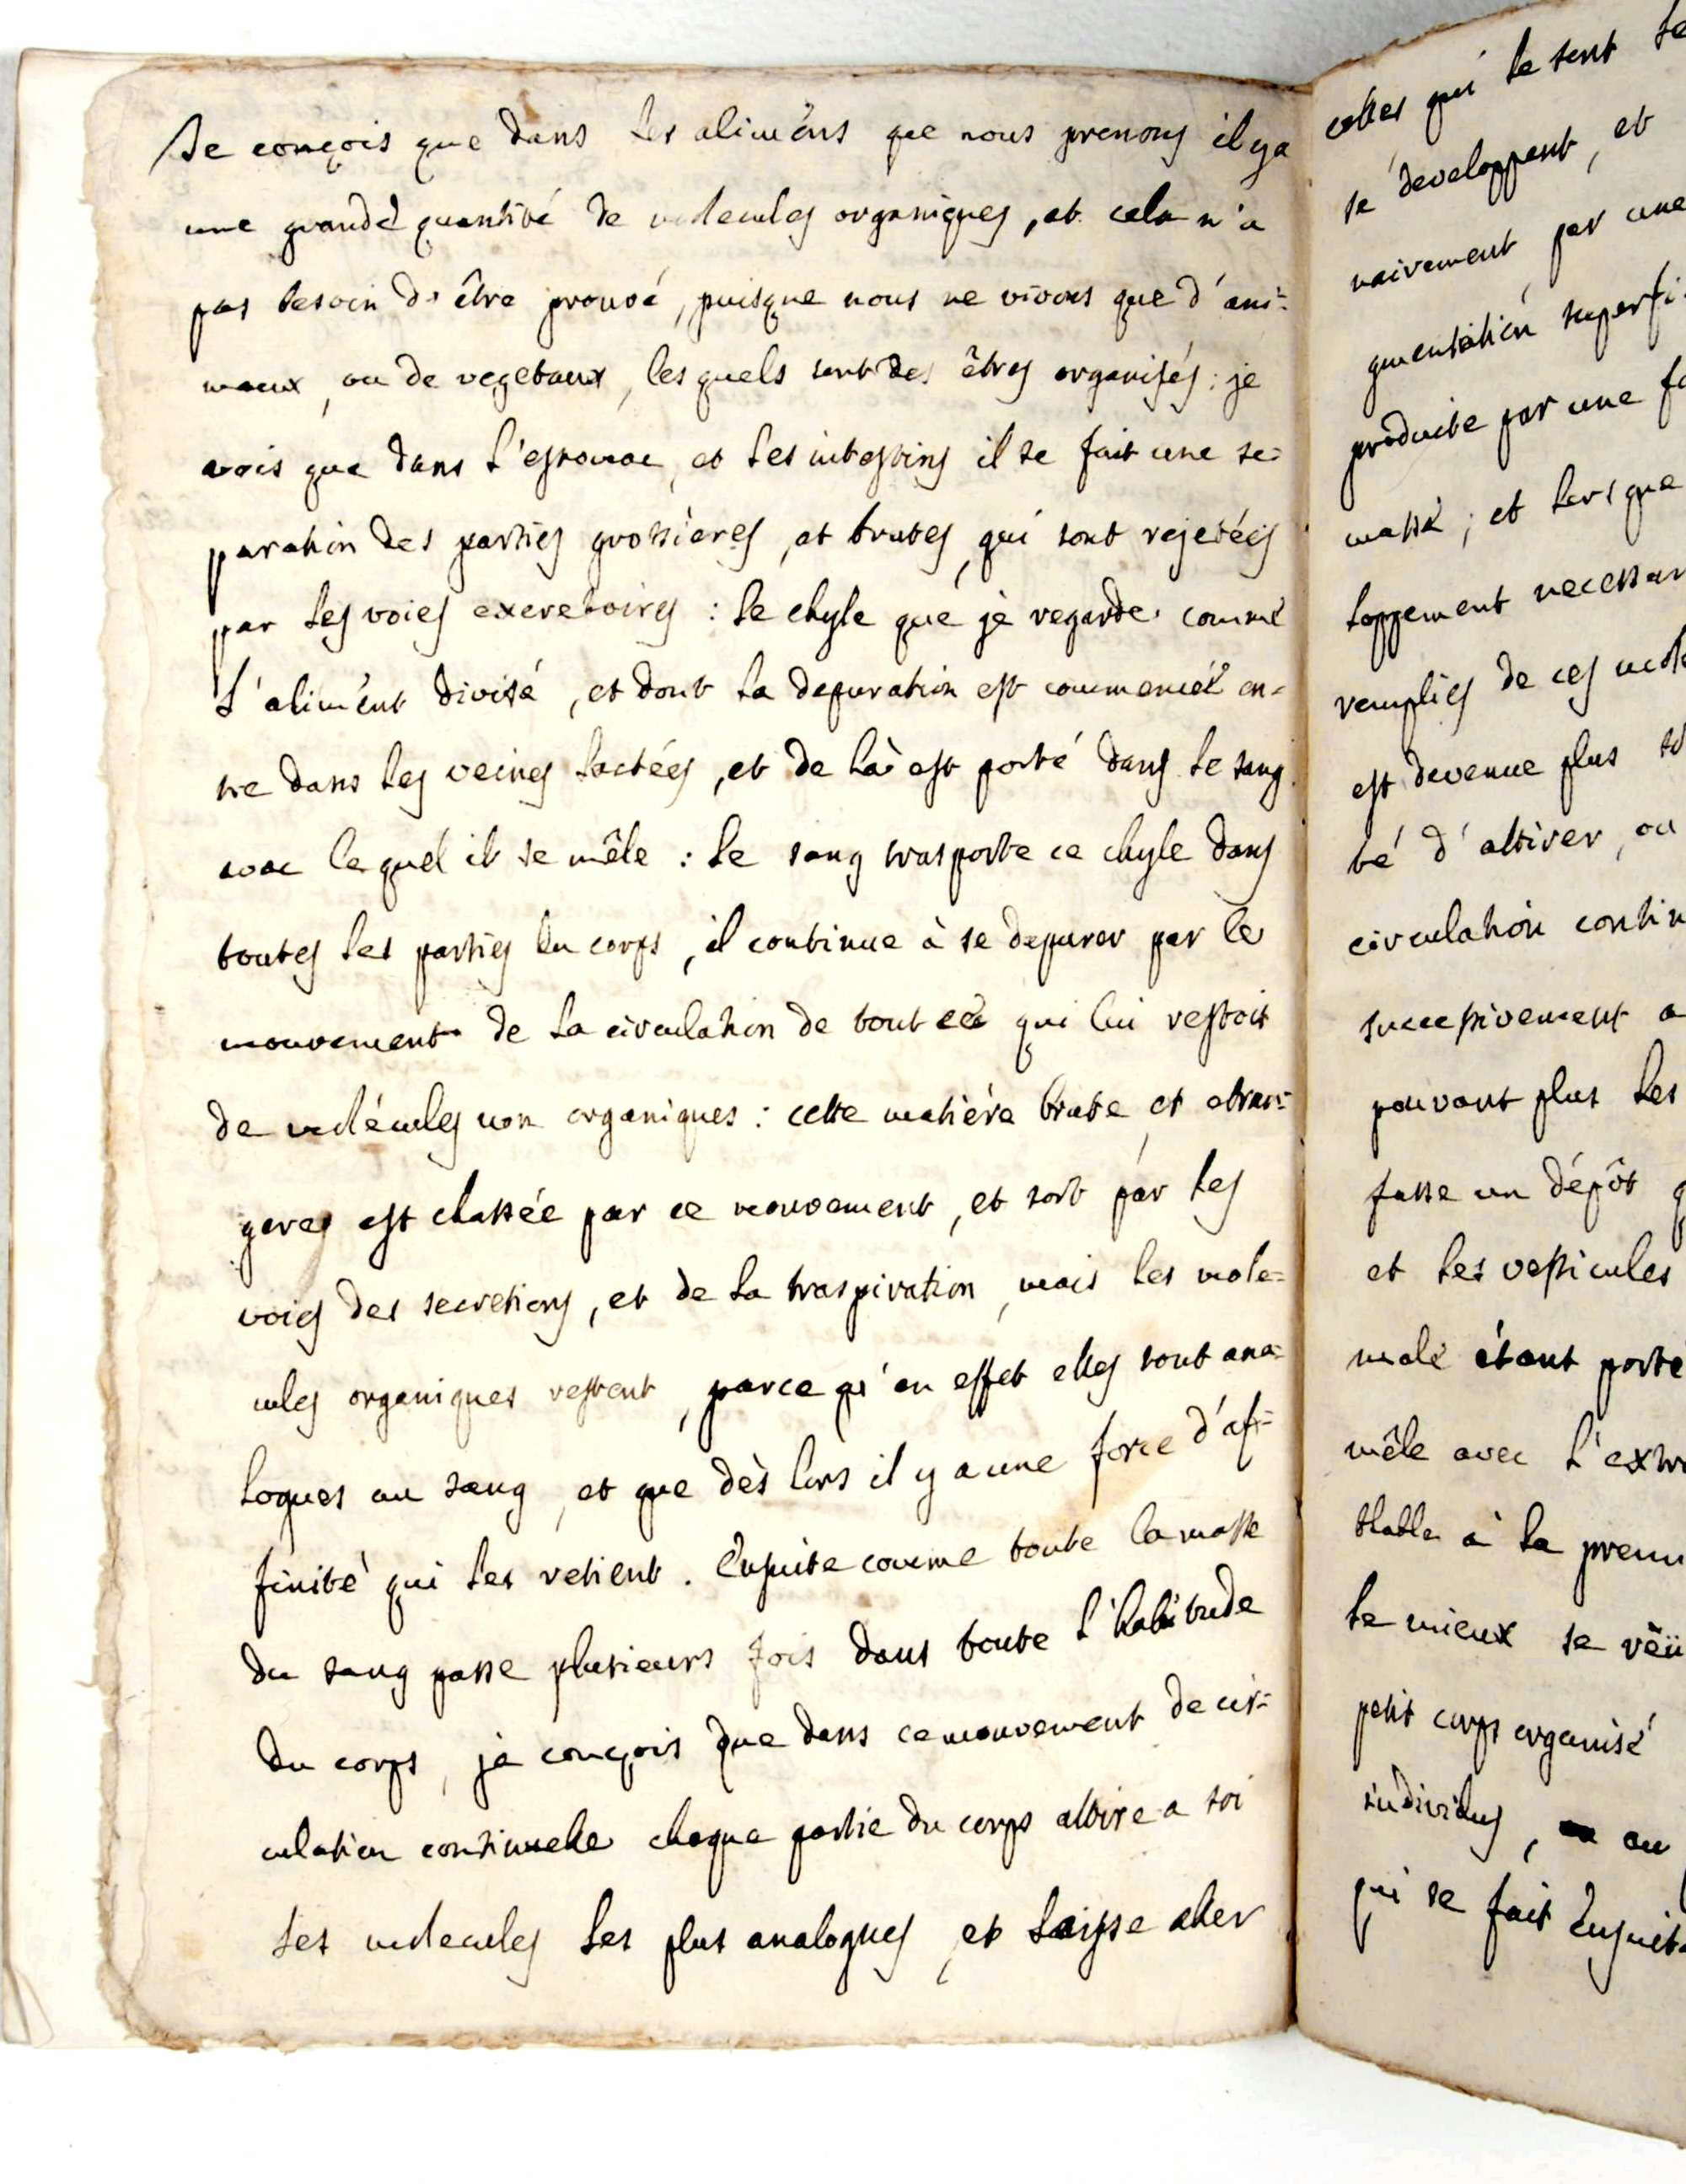 Je conçois que dans les alimens que nous prenons il y a
une grande quantité de molecules organiques, et cela n'a
pas besoin d'être prouvé, puisque nous ne vivons que d'ani=
maux, ou de vegetaux, lesquels sont des êtres organisés: je
vois que dans l'estomac, et les intestins il se fait une se=
paration des parties grossieres, et brutes, qui sont rejetées
par les voies excretoires : le chyle que je regarde comme
l'aliment divisé, et dont la depuration est commencée en=
tre dans les veines lactées, et de là est porté dans le sang
avec lequel il se mêle : le sang trasporte ce chyle dans
toutes les parties du corps, il continue à se depurer par le
mouvement de la circulation de tout ce qui lui restoit
de molécules non organiques : cette matiere brute, et etran=
gere est chassée par ce mouvement, et sort par les
voies des secretions, et de la traspiration, mais les mole=
cules organiques restent, parce qu'en effet elles sont ana=
logues au sang, et que dès lors il y a une force d'af=
finité qui les retient. Ensuite comme toute la masse
du sang passe plusieurs fois dans toute l'habitude
du corps, je conçois que dans ce mouvement de cir=
culation continuelle chaque partie du corps attire a soi
les molecules les plus analogues, et laisse aller
celles qui le sont le
se developpent, et
nairement, par une
gmentation superfi
produite par une fo
masse; et lorsque
loppement necessai
remplies de ces mole
est devenue plus so
té d'attirer, ou
circulation contin
successivement a
pouvant plus les
fasse un dépôt q
et les vessicules
male étant porté
mêle avec l'extra
blable à la premi
le mieux se réü
petit corps organisé
individus, ou
qui se fait ensuit